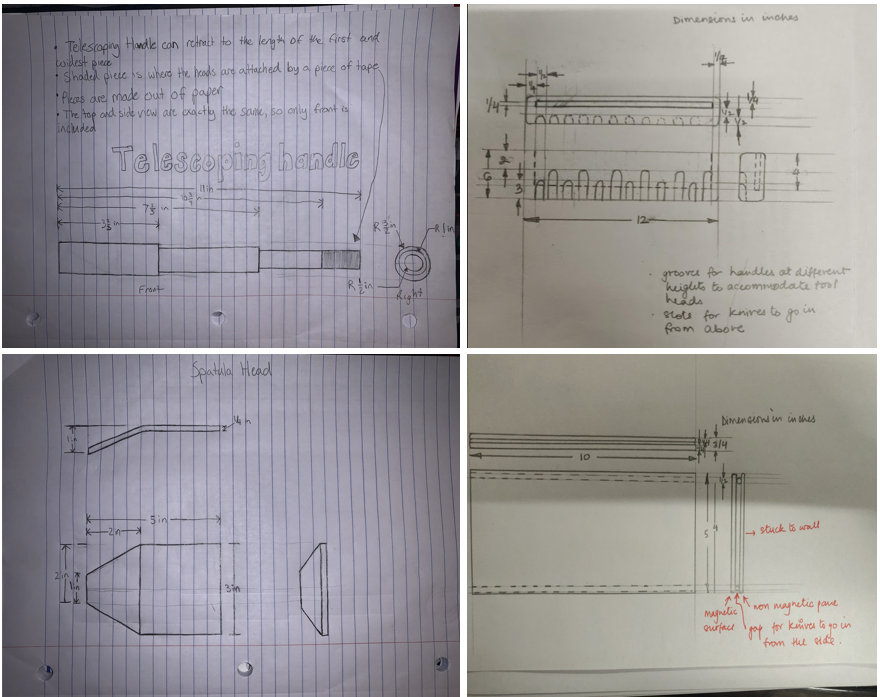 • Telescoping Handle can retract to the length of the first and
widest piece
• Shaded piece is where the heads are attached by a piece of tape
• Pieces are made out of paper
• The top and side view are exactly the same, so only front is
included
Telescoping handle
11in
in
7 1/3 in
in
R 3/2 in
R 1in
R 1/2 in
Front
Right
Dimensions in inches
1/4
1/4
1/2
1/2
6
2
3
4
12
• grooves for handles at different
heights to accommodate tool
heads
• slots for knives to go in
from above
Spatula Head
1in
1/4 in
5in
2in
2in
1in
3in
Dimensions in inches
3/4
10
1/2
5
4
→ stuck to wall
magnetic
surface
non magnetic pane
gap for knives to go in
from the side.